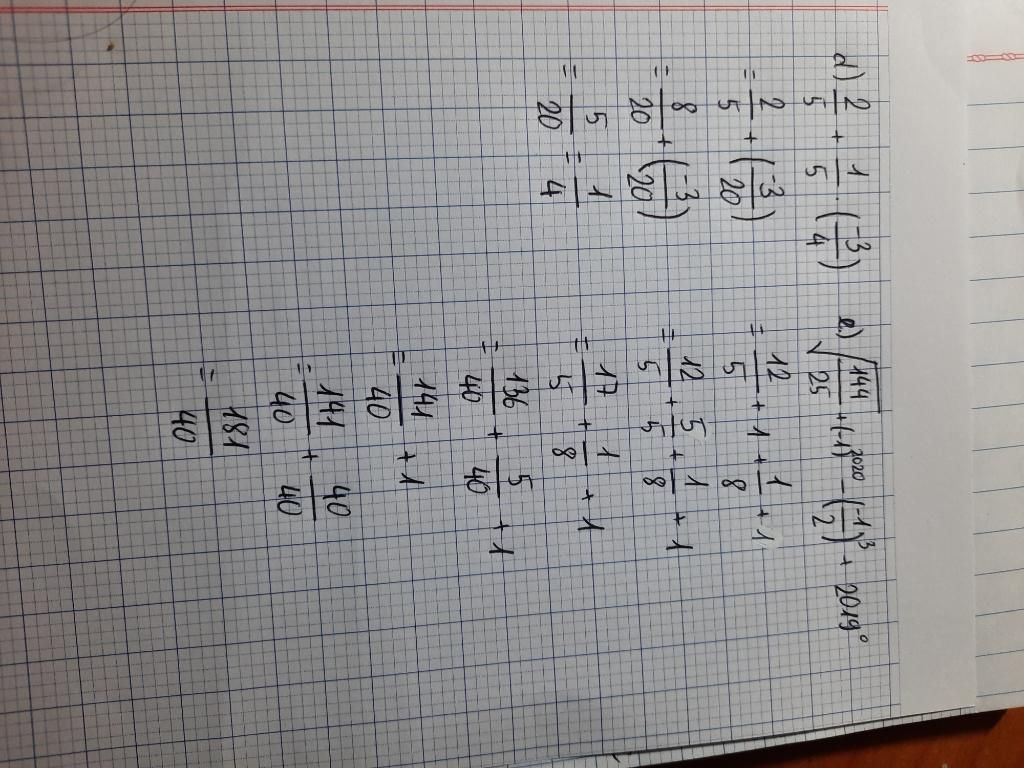 d) 2/5 + 1/5 . (-3/4)
= 2/5 + (-3/20)
= 8/20 + (-3/20)
= 5/20 = 1/4
e) √(144/25) + (-1)^2020 - (-1/2)^3 + 2019^0
= 12/5 + 1 + 1/8 + 1
= 12/5 + 5/5 + 1/8 + 1
= 17/5 + 1/8 + 1
= 136/40 + 5/40 + 1
= 141/40 + 1
= 141/40 + 40/40
= 181/40